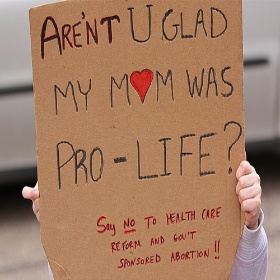 AREN'T U GLAD
MY MOM WAS
PRO-LIFE?
Say NO TO HEALTH CARE
REFORM AND GOV'T
SPONSORED ABORTION!!